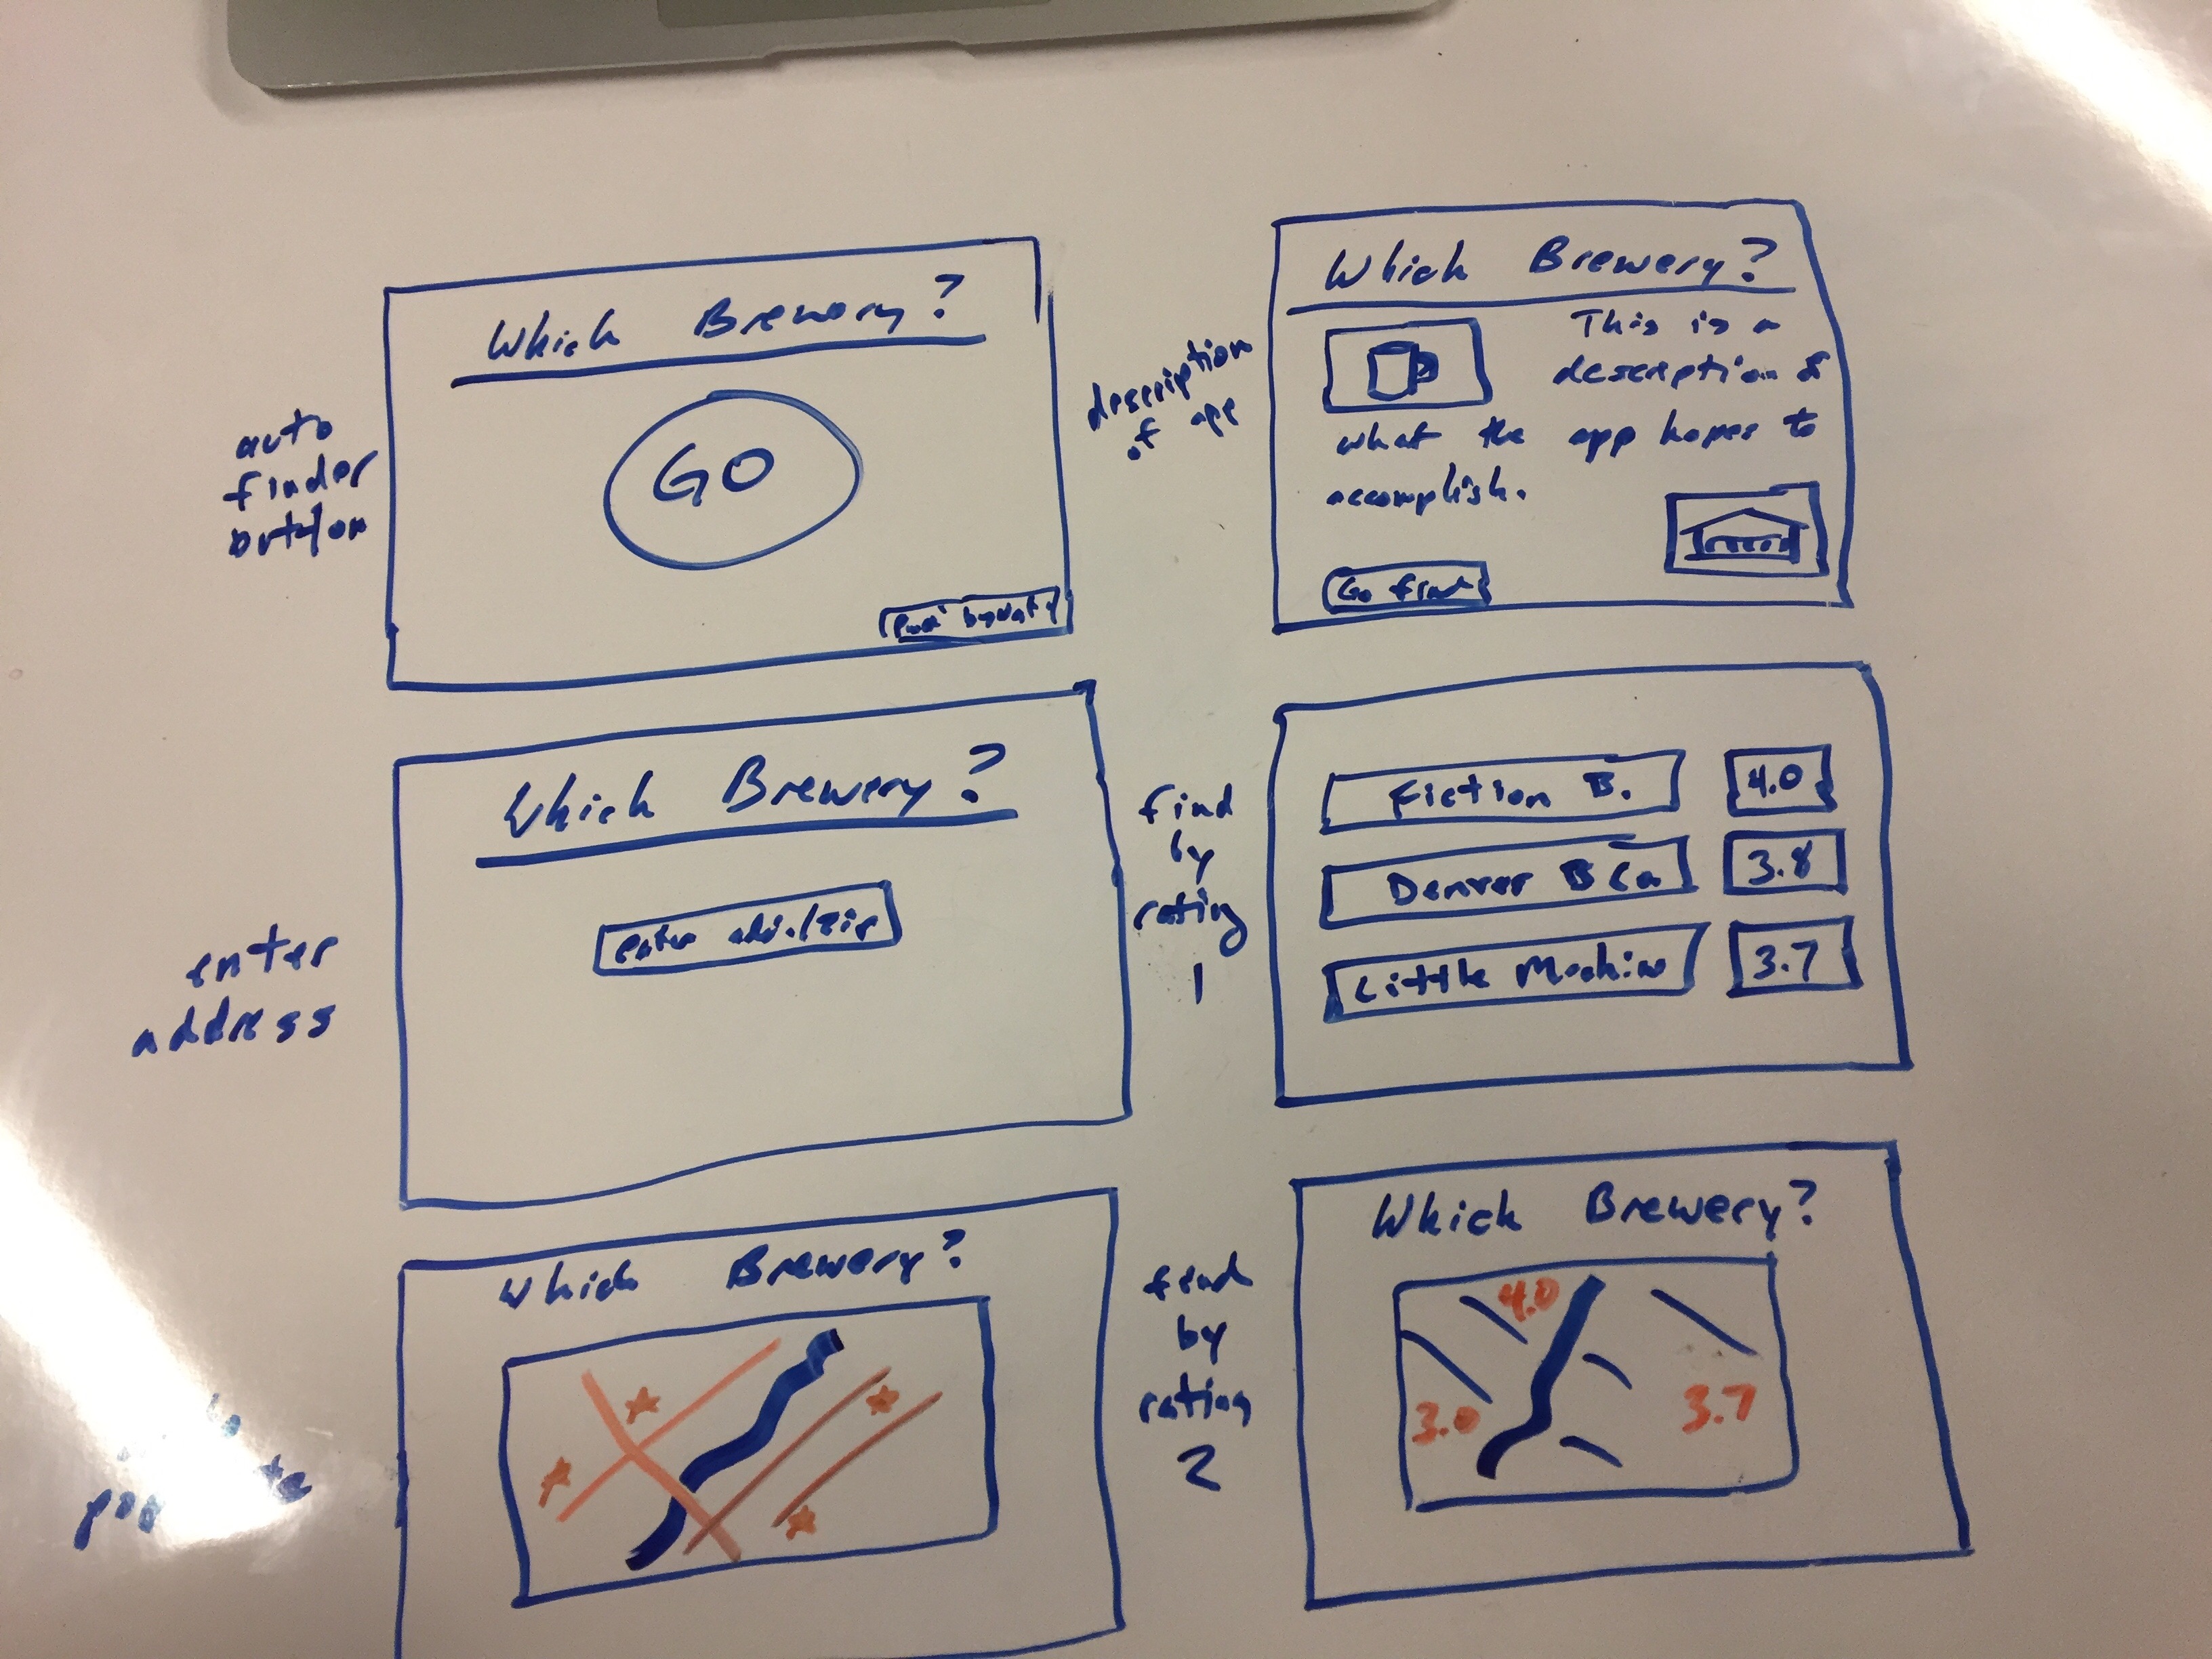 auto
finder
button
Which Brewery?
GO
description
of app
Which Brewery?
This is a
description of
what the app hopes to
accomplish.
Go find
enter
address
Which Brewery?
enter add./zip
find
by
rating
1
Fiction B. 4.0
Denver B Co. 3.8
Little Machin 3.7
Which Brewery?
find
by
rating
2
Which Brewery?
4.0
3.0
3.7